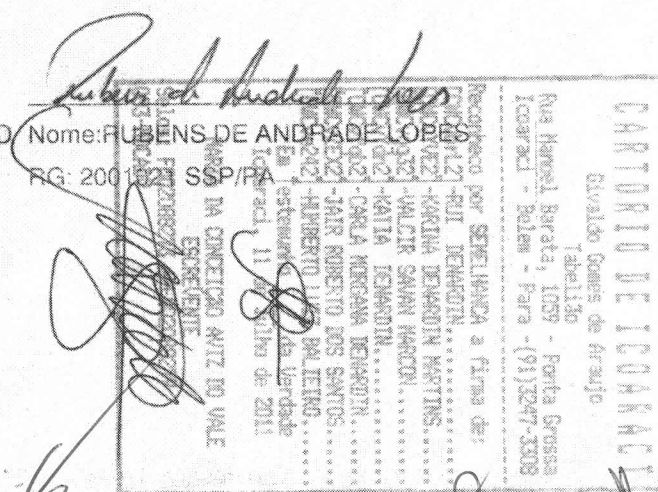 Rubens de Andrade Lopes
Nome:RUBENS DE ANDRADE LOPES
SSP/PA
CARTORIO DE ICOARACI
Givaldo Gomes de Araujo
Tabelião
Rua Manoel Barata, 1059 - Ponta Grossa
Icoaraci - Belem - Para - (91)3247-3308
Reconheço por SEMELHANCA a firma de:
-RUI DENARDIN
-KARINA DENARDIN MARTINS
-VALCIR SAVAN MARCON
-KATIA DENARDIN
-CARLA MORGANA DENARDIN
-JAIR ROBERTO DOS SANTOS
-HUMBERTO BALIEIRO
Em testemunho da Verdade
Icoaraci, 11 de Julho de 2011
MARIA DA CONCEIÇÃO AVIZ DO VALE
ESCREVENTE